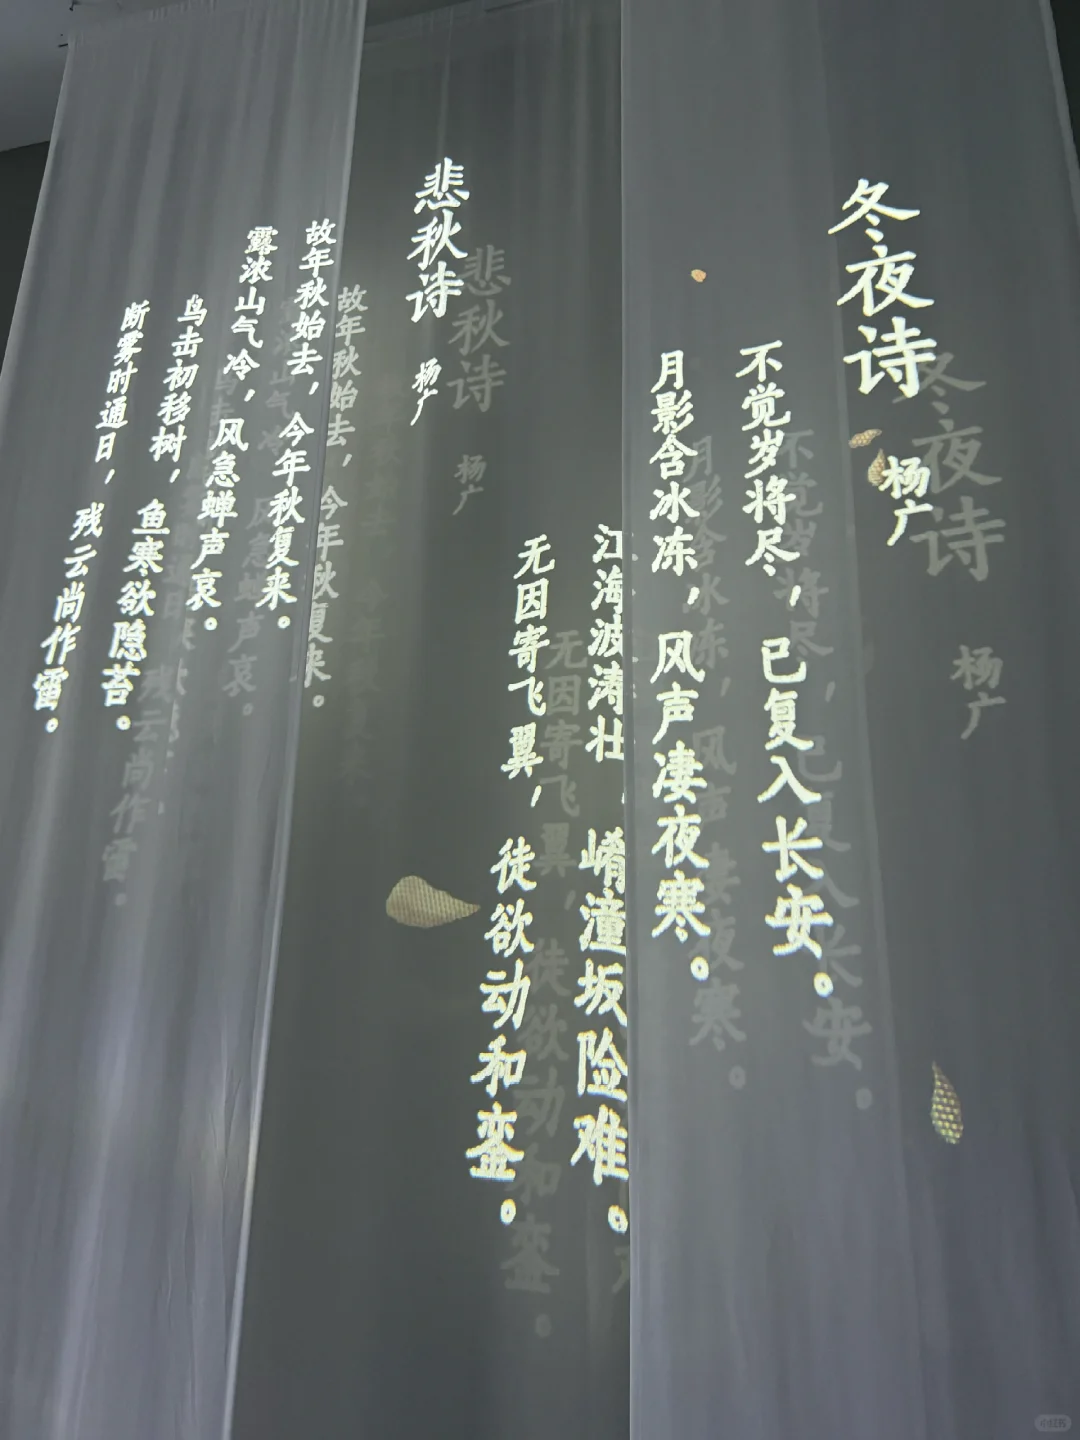 冬夜诗
杨广
不觉岁将尽，已复入长安。
月影含冰冻，风声凄夜寒。
江海波涛壮，崤潼坂险难。
无因寄飞翼，徒欲动和銮。
悲秋诗
杨广
故年秋始去，今年秋复来。
露浓山气冷，风急蝉声哀。
鸟击初移树，鱼寒欲隐苔。
断雾时通日，残云尚作雷。